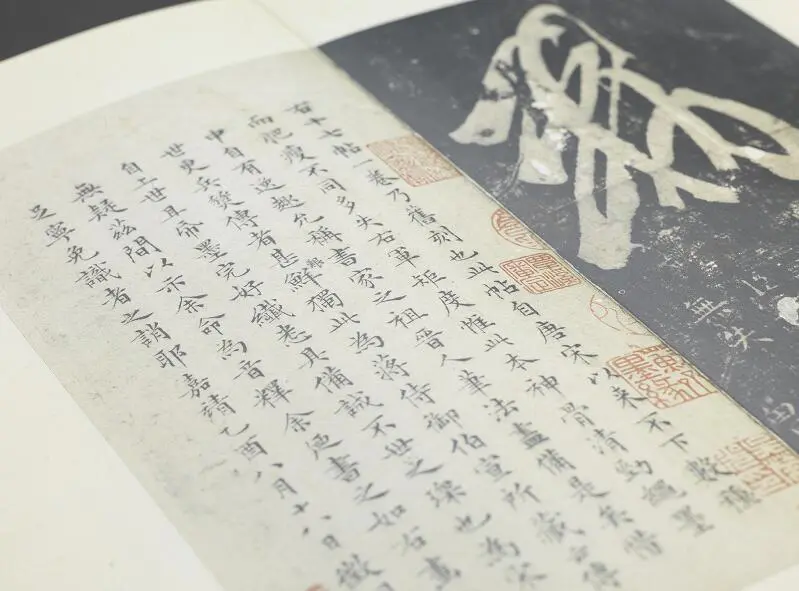 右十七帖一卷乃舊刻也此帖自唐宋以来不下數種
而肥瘦不同多失右軍矩度惟此本神骨清勁繩墨
中自有逆趣允稱書家之祖晉人筆法盡備是矣惜
世更兵燹傳者甚鮮獨此為蔣侍御伯宣所藏云傳
自上世耳帋墨完好纖悉具備誠不世之璨也為家
無疑茲間以示余命為音釋余書之如右畫
足寧免識者之誚耶嘉靖乙酉八月十八日徵
無失
墨緣